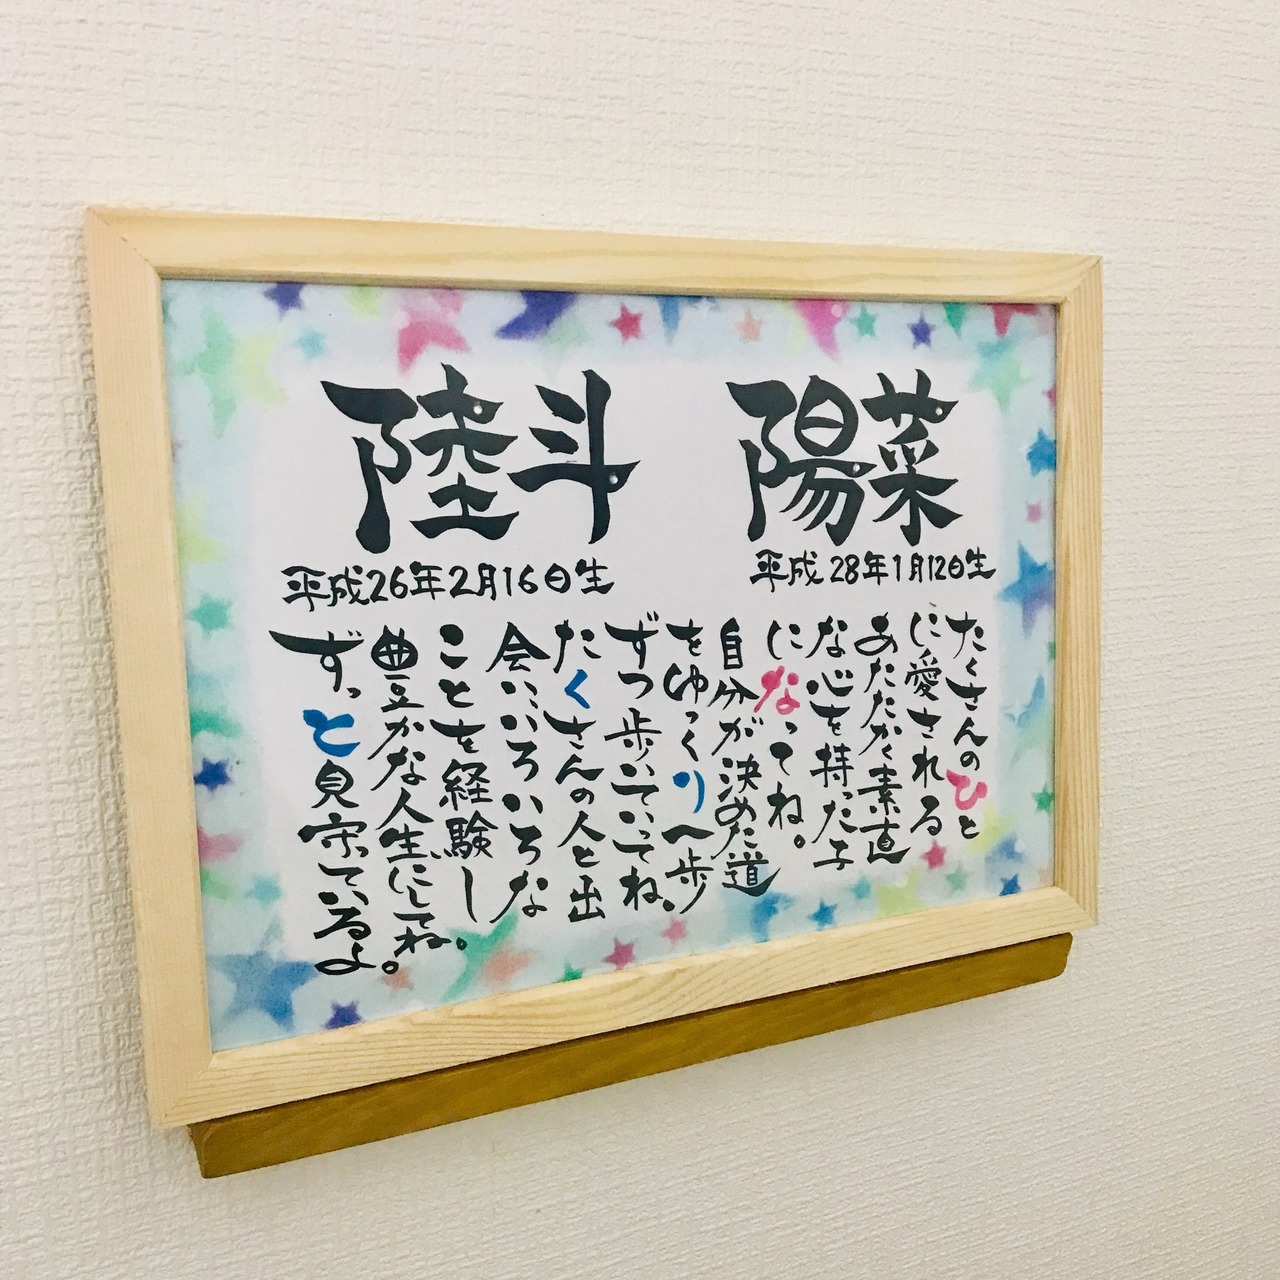 陽菜
平成28年1月12日生
陸斗
平成26年2月16日生
たくさんのひと
に愛される
あたたかく素直
な心を持った子
になってね。
自分が決めた道
をゆっくり一歩
ずつ歩いていってね。
たくさんの人と出
会いいろいろな
ことを経験し
豊かな人生にしてね。
ずっと見守ているよ。